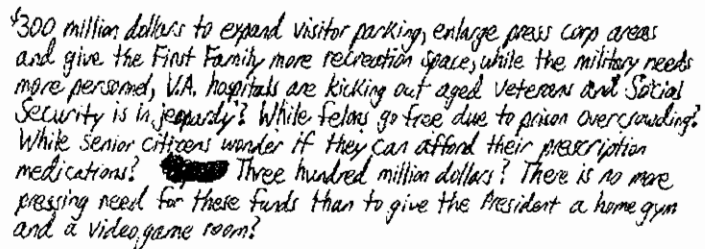 $300 million dollars to expand visitor parking, enlarge press corp areas
and give the First Family more recreation space, while the military needs
more personnel, V.A. hospitals are kicking out aged veterans and Social
Security is in jeopardy? While felons go free due to prison overcrowding?
While senior citizens wonder if they can afford their prescription
medications? Three hundred million dollars? There is no more
pressing need for these funds than to give the President a home gym
and a video game room?